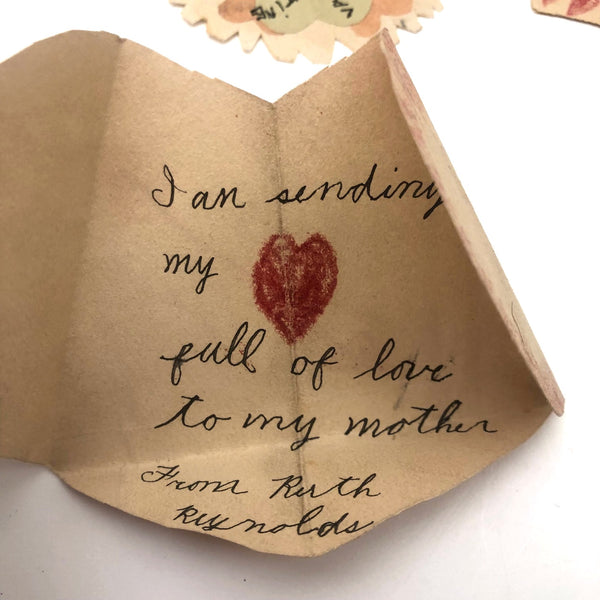 I an sending
my
full of love
to my mother
From Ruth
Reynolds